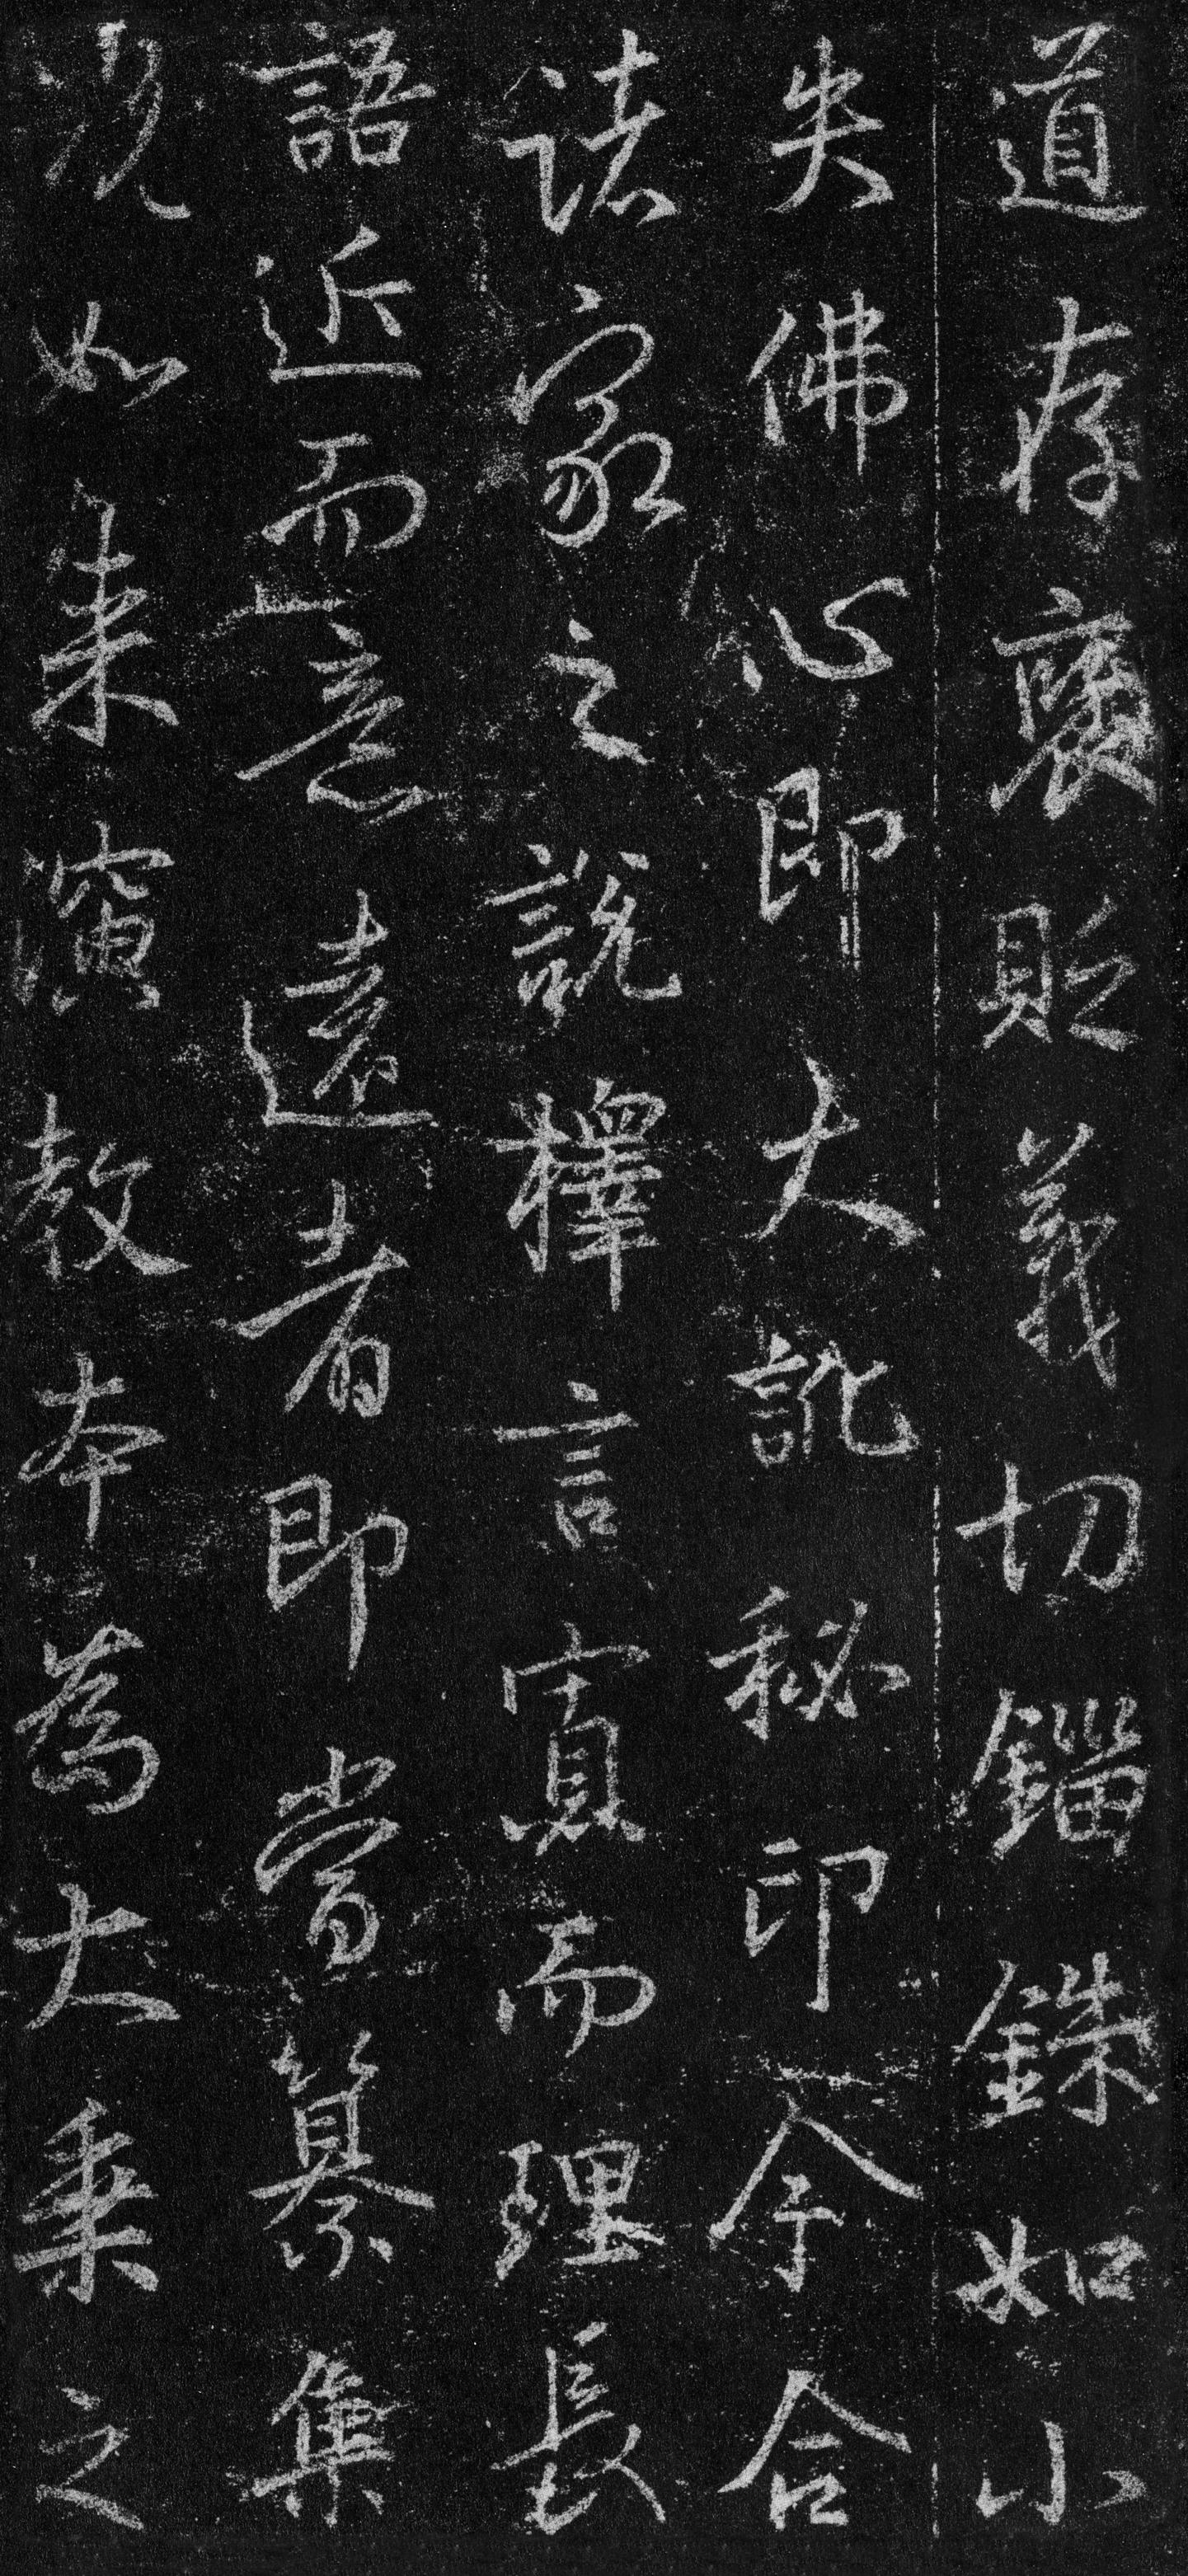 道存褒貶義切錙銖如小
失佛心即大訛秘印今合
諸家之說擇言寘而理長
語近而意遠者即當纂集
況如来演教本為大乗之